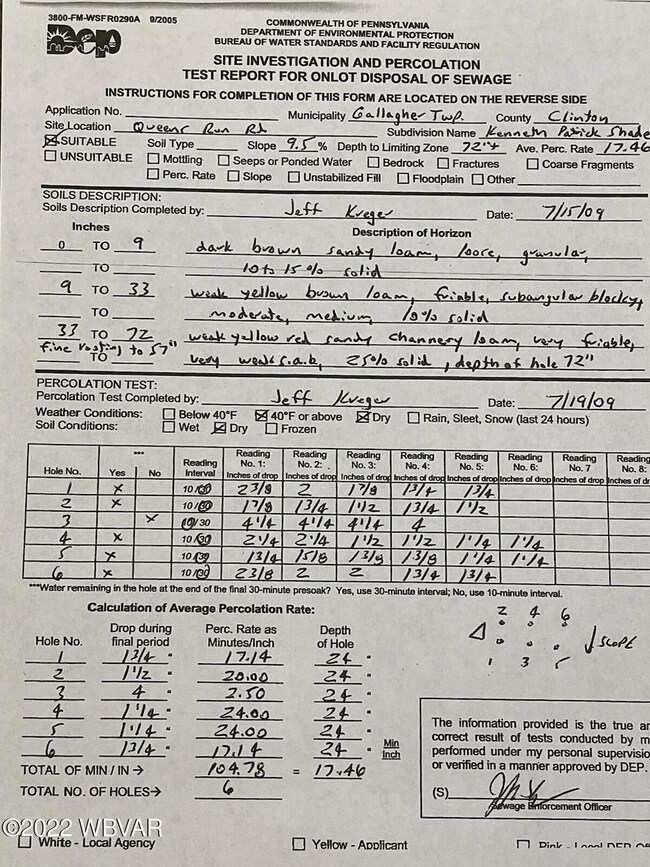 3800-FM-WSFR0290A 9/2005
Dep
COMMONWEALTH OF PENNSYLVANIA
DEPARTMENT OF ENVIRONMENTAL PROTECTION
BUREAU OF WATER STANDARDS AND FACILITY REGULATION
SITE INVESTIGATION AND PERCOLATION
TEST REPORT FOR ONLOT DISPOSAL OF SEWAGE
INSTRUCTIONS FOR COMPLETION OF THIS FORM ARE LOCATED ON THE REVERSE SIDE
Application No. Municipality Gallagher Twp. County Clinton
Site Location Queens Run Rd Subdivision Name Kenneth Patrick Shade
SUITABLE Soil Type Slope 9.5 % Depth to Limiting Zone 72"+ Ave. Perc. Rate 17.46
UNSUITABLE Mottling Seeps or Ponded Water Bedrock Fractures Coarse Fragments
Perc. Rate Slope Unstabilized Fill Floodplain Other
SOILS DESCRIPTION:
Soils Description Completed by: Jeff Kreger Date: 7/15/09
Inches Description of Horizon
0 TO 9 dark brown sandy loam, loose, granular,
TO 10 to 15 % solid
9 TO 33 weak yellow brown loam, friable, subangular blocky,
TO moderate, medium, 10% solid
33 TO 72 weak yellow red sandy channery loam, very friable,
fine rooting to 57" TO very weak s.a.b, 25% solid, depth of hole 72"
PERCOLATION TEST:
Percolation Test Completed by: Jeff Kreger Date: 7/19/09
Weather Conditions: Below 40°F 40°F or above Dry Rain, Sleet, Snow (last 24 hours)
Soil Conditions: Wet Dry Frozen
*** Reading Reading Reading Reading Reading Reading Reading Reading
Hole No. Yes No Reading Interval No. 1: No. 2: No. 3: No. 4: No. 5: No. 6: No. 7 No. 8:
Inches of drop Inches of drop Inches of drop Inches of drop Inches of drop Inches of drop Inches of drop Inches of drop
1 x 10/30 2 3/8 2 1 7/8 1 3/4 1 3/4
2 x 10/30 1 7/8 1 3/4 1 1/2 1 3/4 1 1/2
3 x 10/30 4 1/4 4 1/4 4 1/4 4
4 x 10/30 2 1/4 2 1/4 1 1/2 1 1/2 1 1/4 1 1/4
5 x 10/30 1 3/4 1 5/8 1 3/8 1 3/8 1 1/4 1 1/4
6 x 10/30 2 3/8 2 2 1 3/4 1 3/4
***Water remaining in the hole at the end of the final 30-minute presoak? Yes, use 30-minute interval; No, use 10-minute interval.
Calculation of Average Percolation Rate:
Hole No. Drop during final period Perc. Rate as Minutes/Inch Depth of Hole
1 1 3/4 " 17.14 24 "
2 1 1/2 " 20.00 24 "
3 4 " 2.50 24 "
4 1 1/4 " 24.00 24 "
5 1 1/4 " 24.00 24 "
6 1 3/4 " 17.14 24 "
TOTAL OF MIN / IN → 104.78 = 17.46 Min Inch
TOTAL NO. OF HOLES→ 6
2 4 6
1 3 5
SLOPE
The information provided is the true an
correct result of tests conducted by m
performed under my personal supervisio
or verified in a manner approved by DEP.
(S)
Sewage Enforcement Officer
©2022 WBVAR
White - Local Agency Yellow - Applicant Pink - Local DEP Of